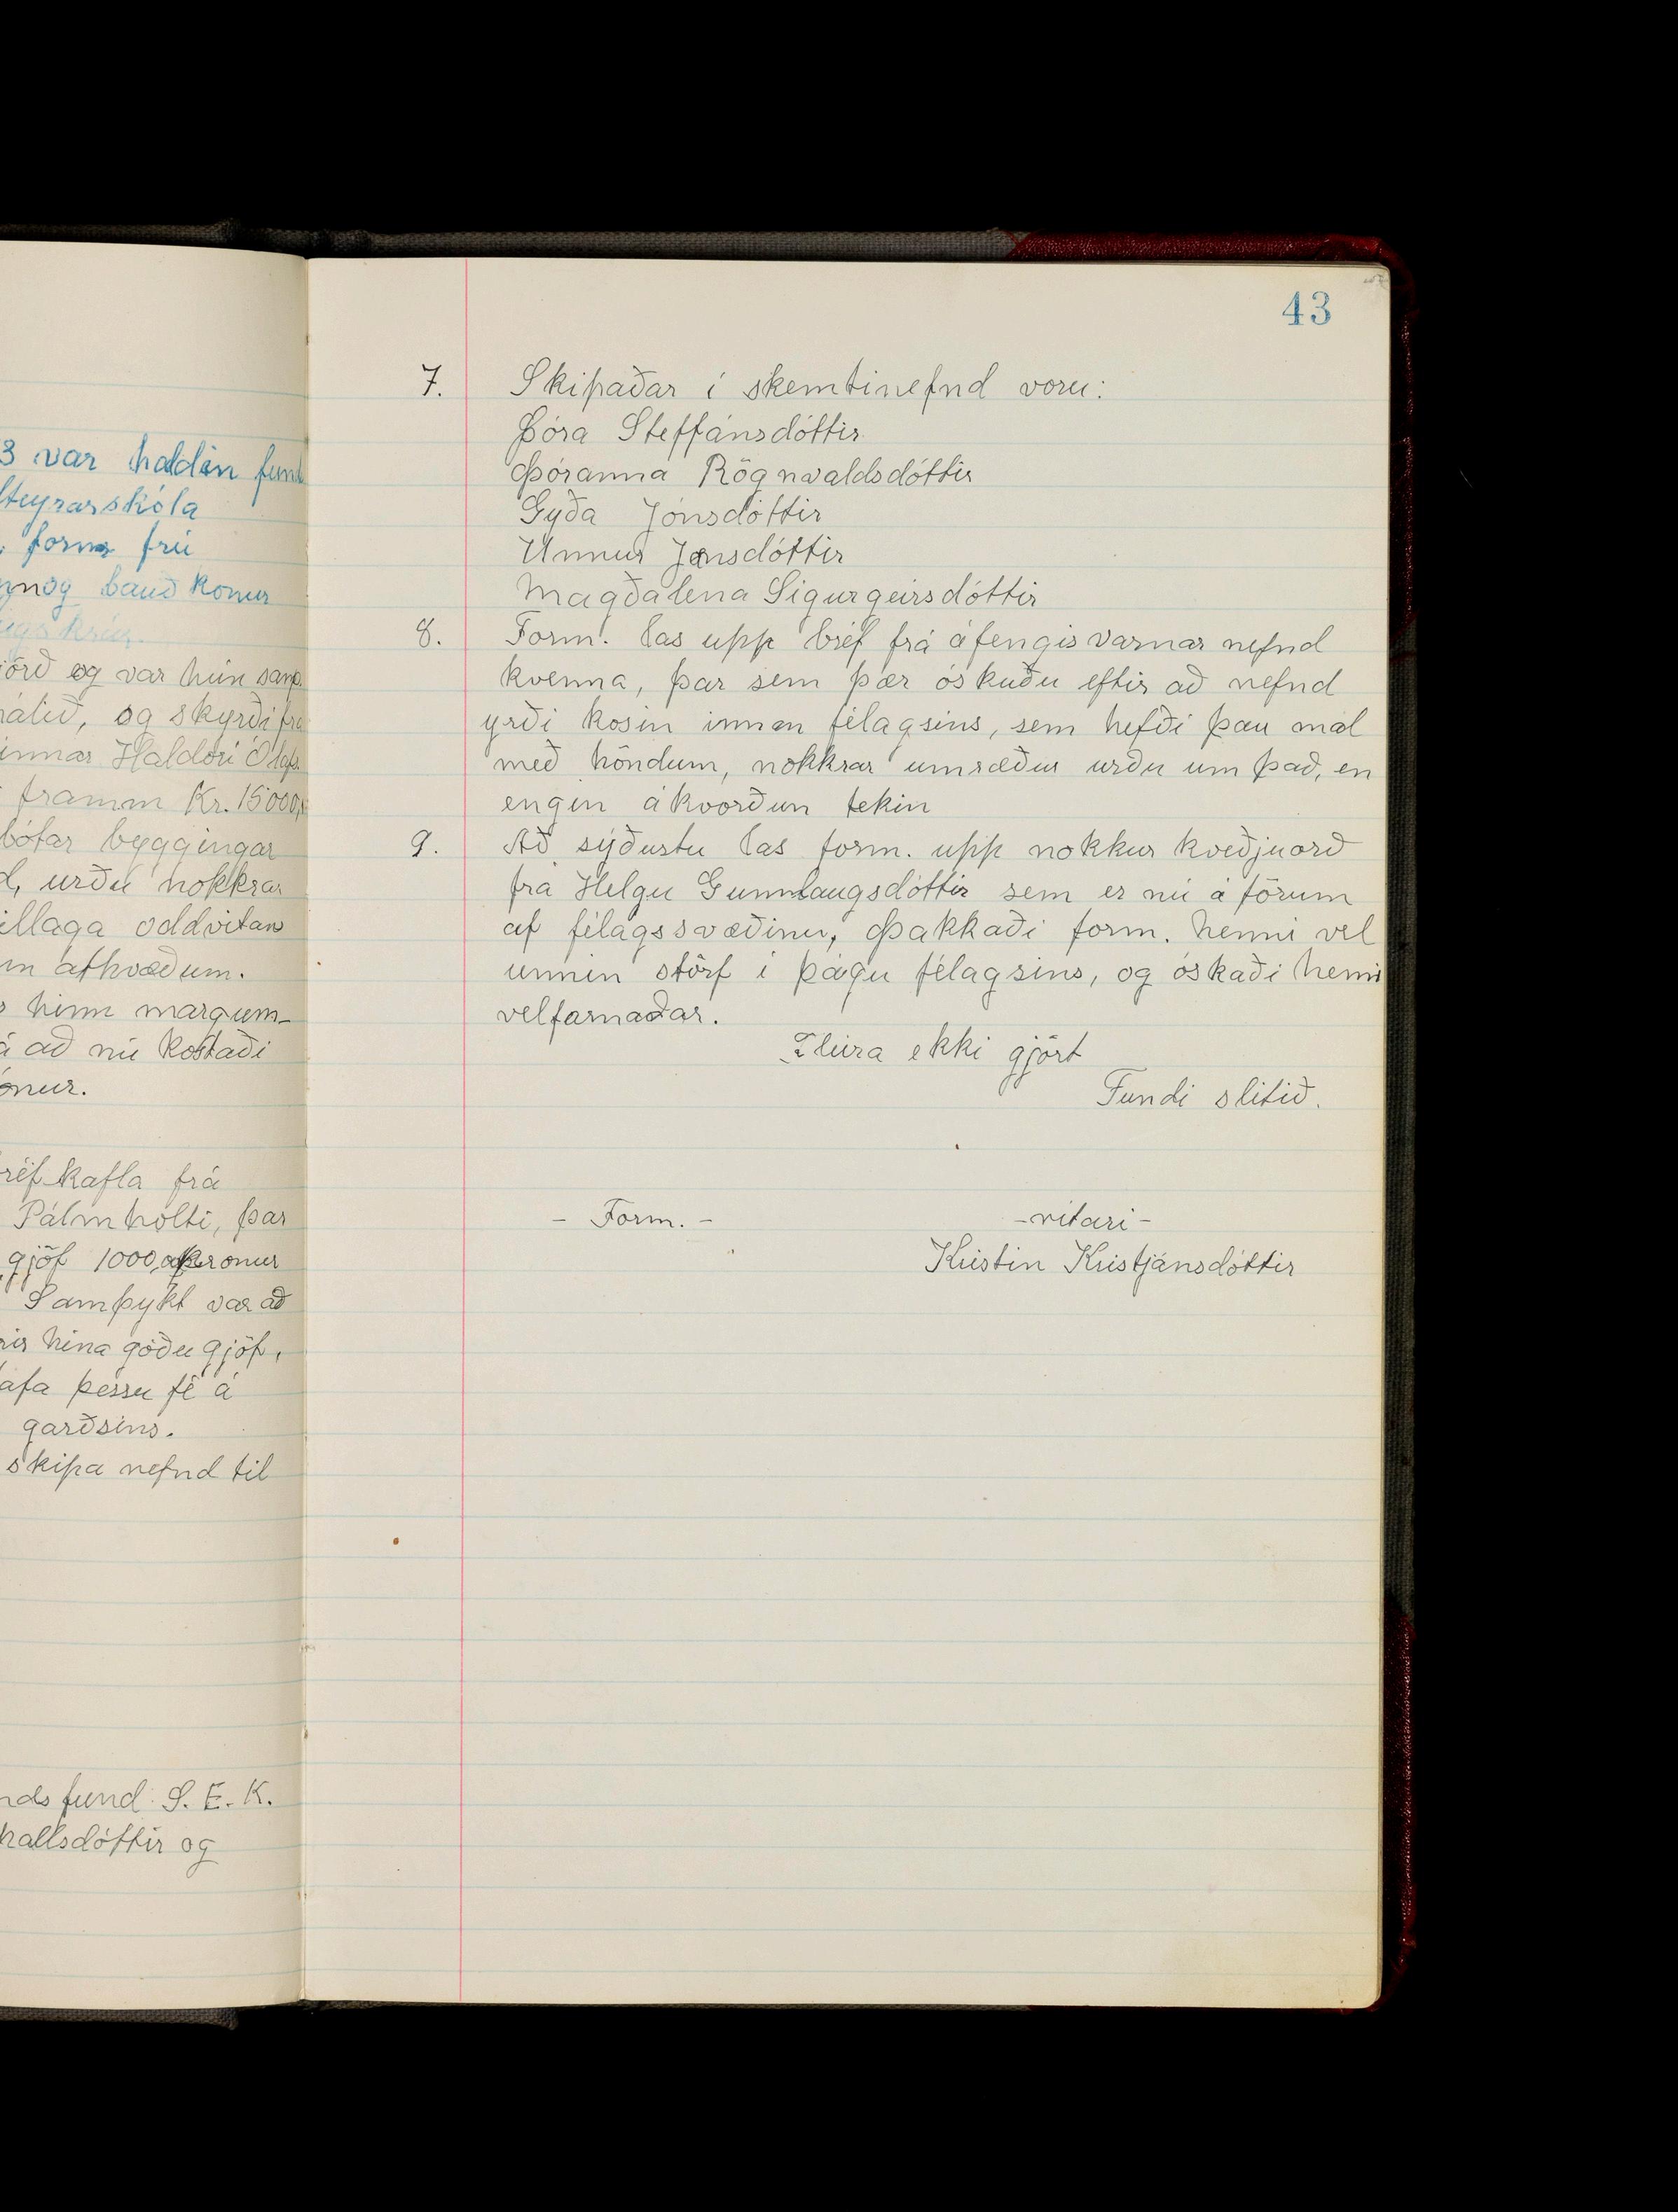 3 var haldin fund
steyrarskóla
form frú
og bauð konur
örð og var hún samþ.
málið, og skyrði frá
innar Haldóri Ólafs
framm Kr. 15000,
bótar byggingar
d, urðu nokkrar
illaga oddvitans
m atkvæðum.
hinn margum-
á að nú kostaði
ónur.
réf kafla frá
Pálmholti, þar
gjöf 1000, krónur
Samþykt var að
rir hina góðu gjöf,
afa þessu fé á
garðsins.
skipa nefnd til
nds fund S. E. K.
hallsdóttir og
43
7. Skipaðar í skemtinefnd voru:
Þóra Steffánsdóttir
Þóranna Rögnvaldsdóttir
Gyða Jónsdóttir
Unnur Jónsdóttir
Magðalena Sigurgeirsdóttir
8. Form. las upp bréf frá áfengisvarnar nefnd
kvenna, þar sem þær óskuðu eftir að nefnd
yrði kosin innan félagsins, sem hefði þau mál
með höndum, nokkrar umræður urðu um það, en
engin ákvorðun tekin
9. Að sýðustu las form. upp nokkur kveðjuorð
frá Helgu Gunnlaugsdóttir sem er nú á förum
af félagssvæðinu, Þakkaði form. henni vel
unnin störf í þágu félagsins, og óskaði henni
velfarnaðar.
Fleira ekki gjört
Fundi slitið.
- Form. - -ritari-
Kristín Kristjánsdóttir